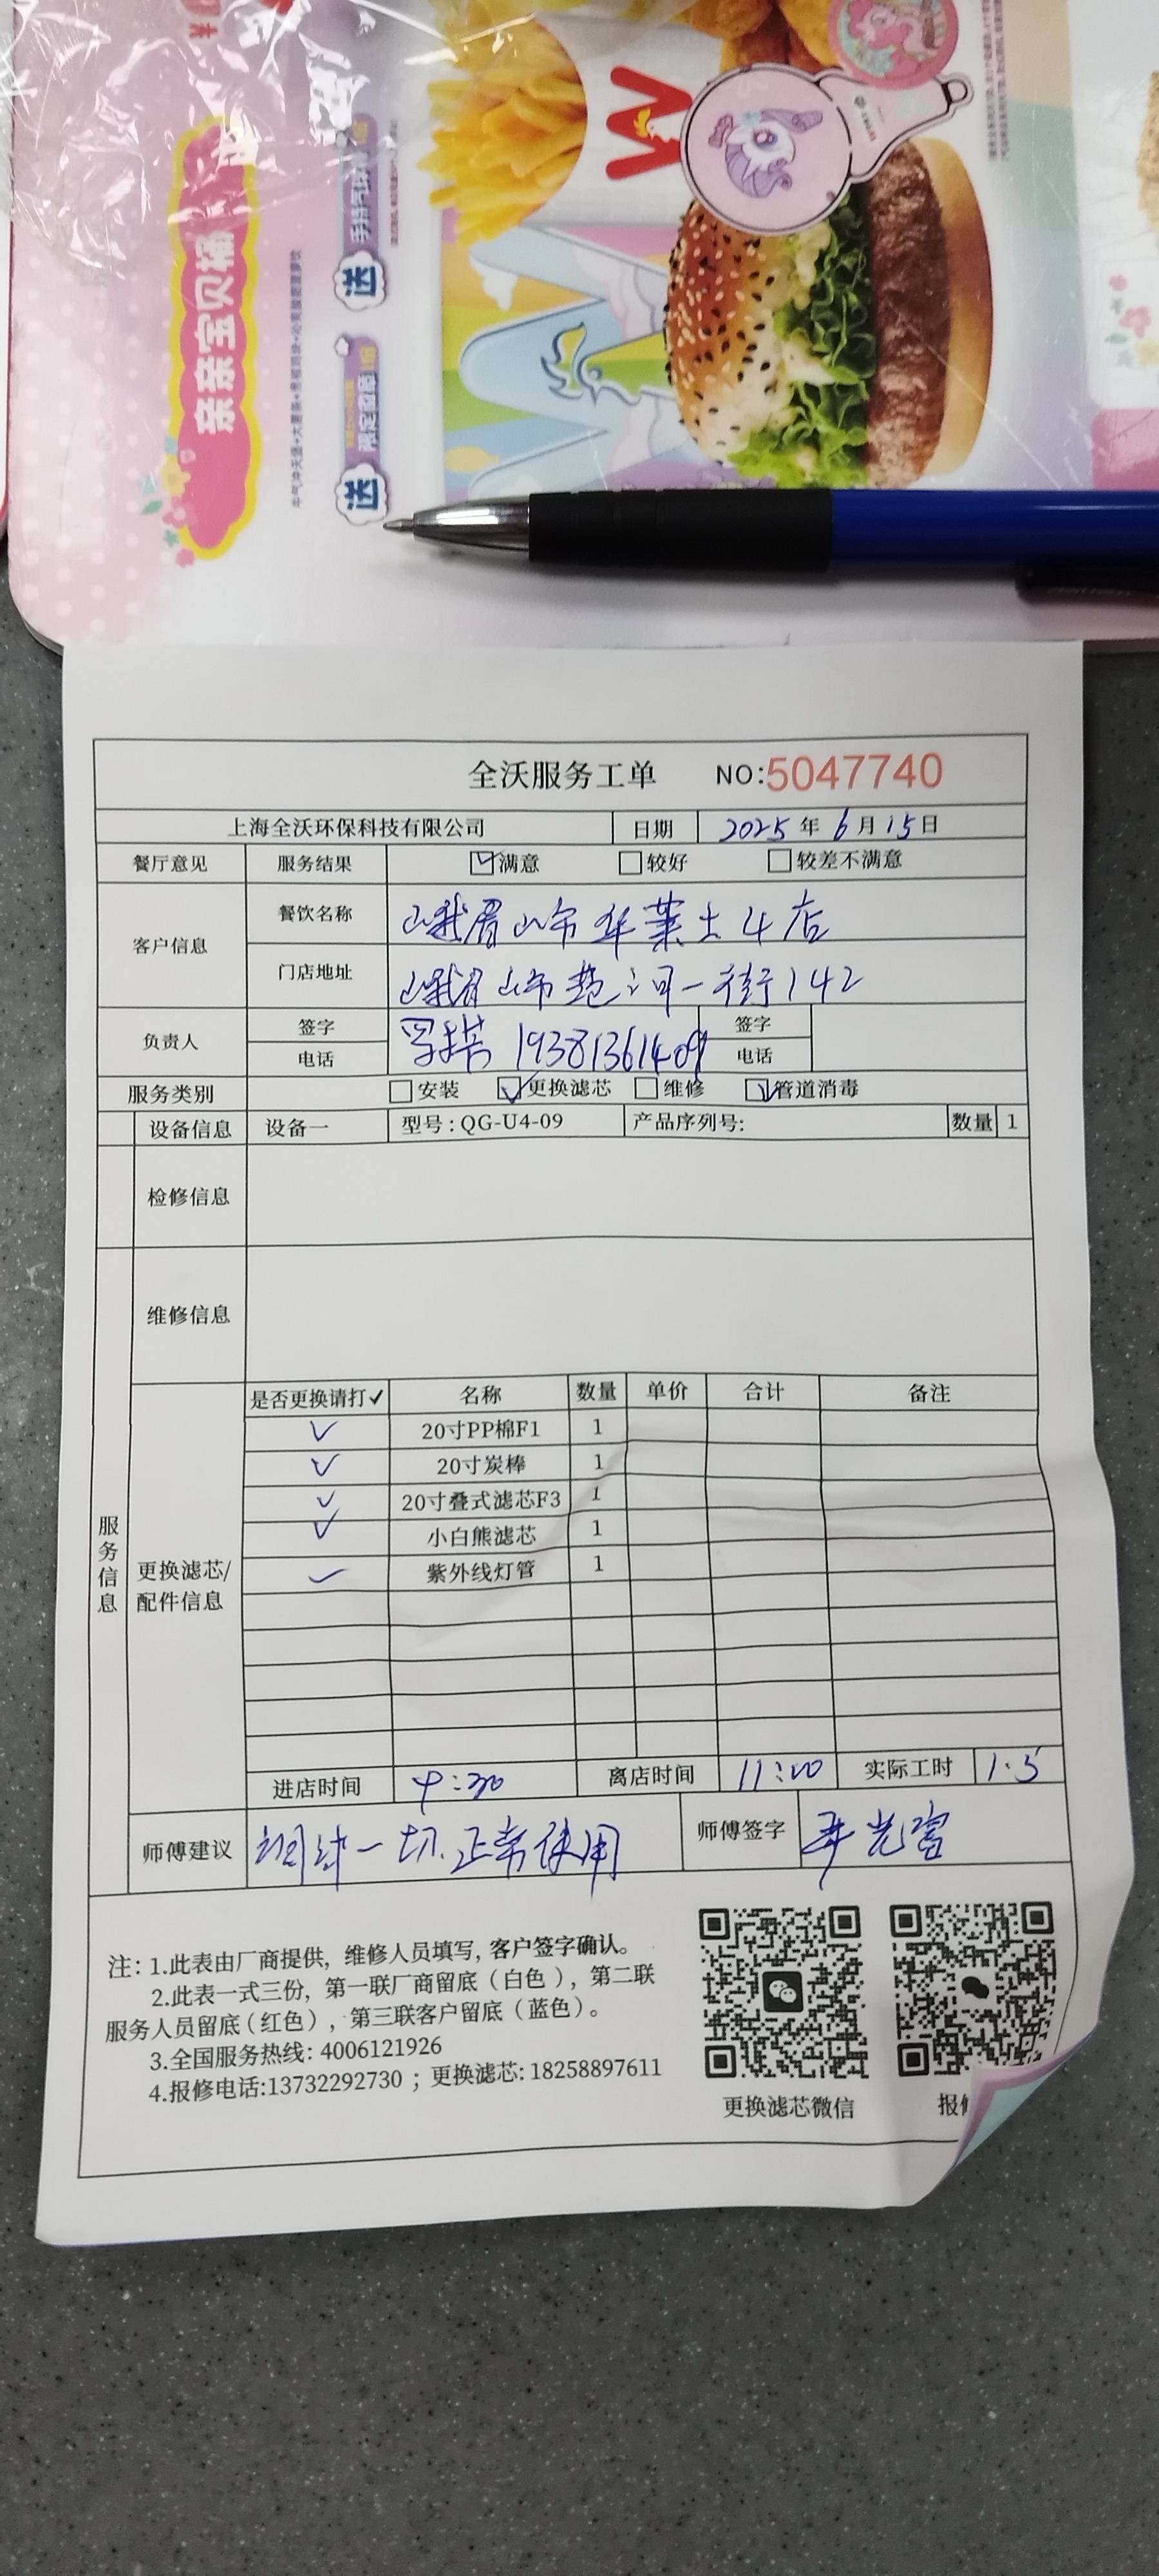 亲亲宝贝桶
送
手持
送
限定
全沃服务工单 NO:5047740
上海全沃环保科技有限公司 日期 2025 年 6 月 15 日
餐厅意见 服务结果 ☑满意 □较好 □较差不满意
客户信息 餐饮名称 峨眉山市华莱士4店
门店地址 峨眉山市 河一街142
负责人 签字 签字
电话 19381361409 电话
服务类别 □安装 ☑更换滤芯 □维修 ☑管道消毒
设备信息 设备一 型号:QG-U4-09 产品序列号: 数量 1
检修信息
维修信息
服务信息
更换滤芯/
配件信息
是否更换请打✓ 名称 数量 单价 合计 备注
✓ 20寸PP棉F1 1
✓ 20寸炭棒 1
✓ 20寸叠式滤芯F3 1
✓ 小白熊滤芯 1
✓ 紫外线灯管 1
进店时间 9:30 离店时间 11:00 实际工时 1.5
师傅建议 调试一切正常使用 师傅签字
注: 1.此表由厂商提供, 维修人员填写, 客户签字确认。
2.此表一式三份, 第一联厂商留底(白色), 第二联
服务人员留底(红色), 第三联客户留底(蓝色)。
3.全国服务热线: 4006121926
4.报修电话:13732292730 ; 更换滤芯: 18258897611
更换滤芯微信 报修